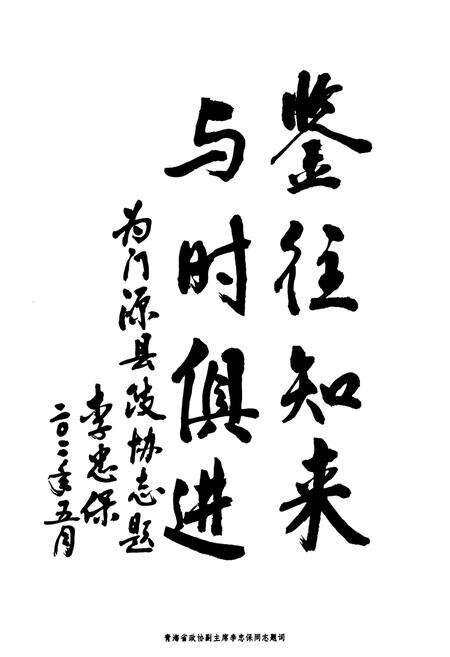 鉴往知来
与时俱进
为门源县政协志题
李忠保
二〇一一年五月
青海省政协副主席李忠保同志题词